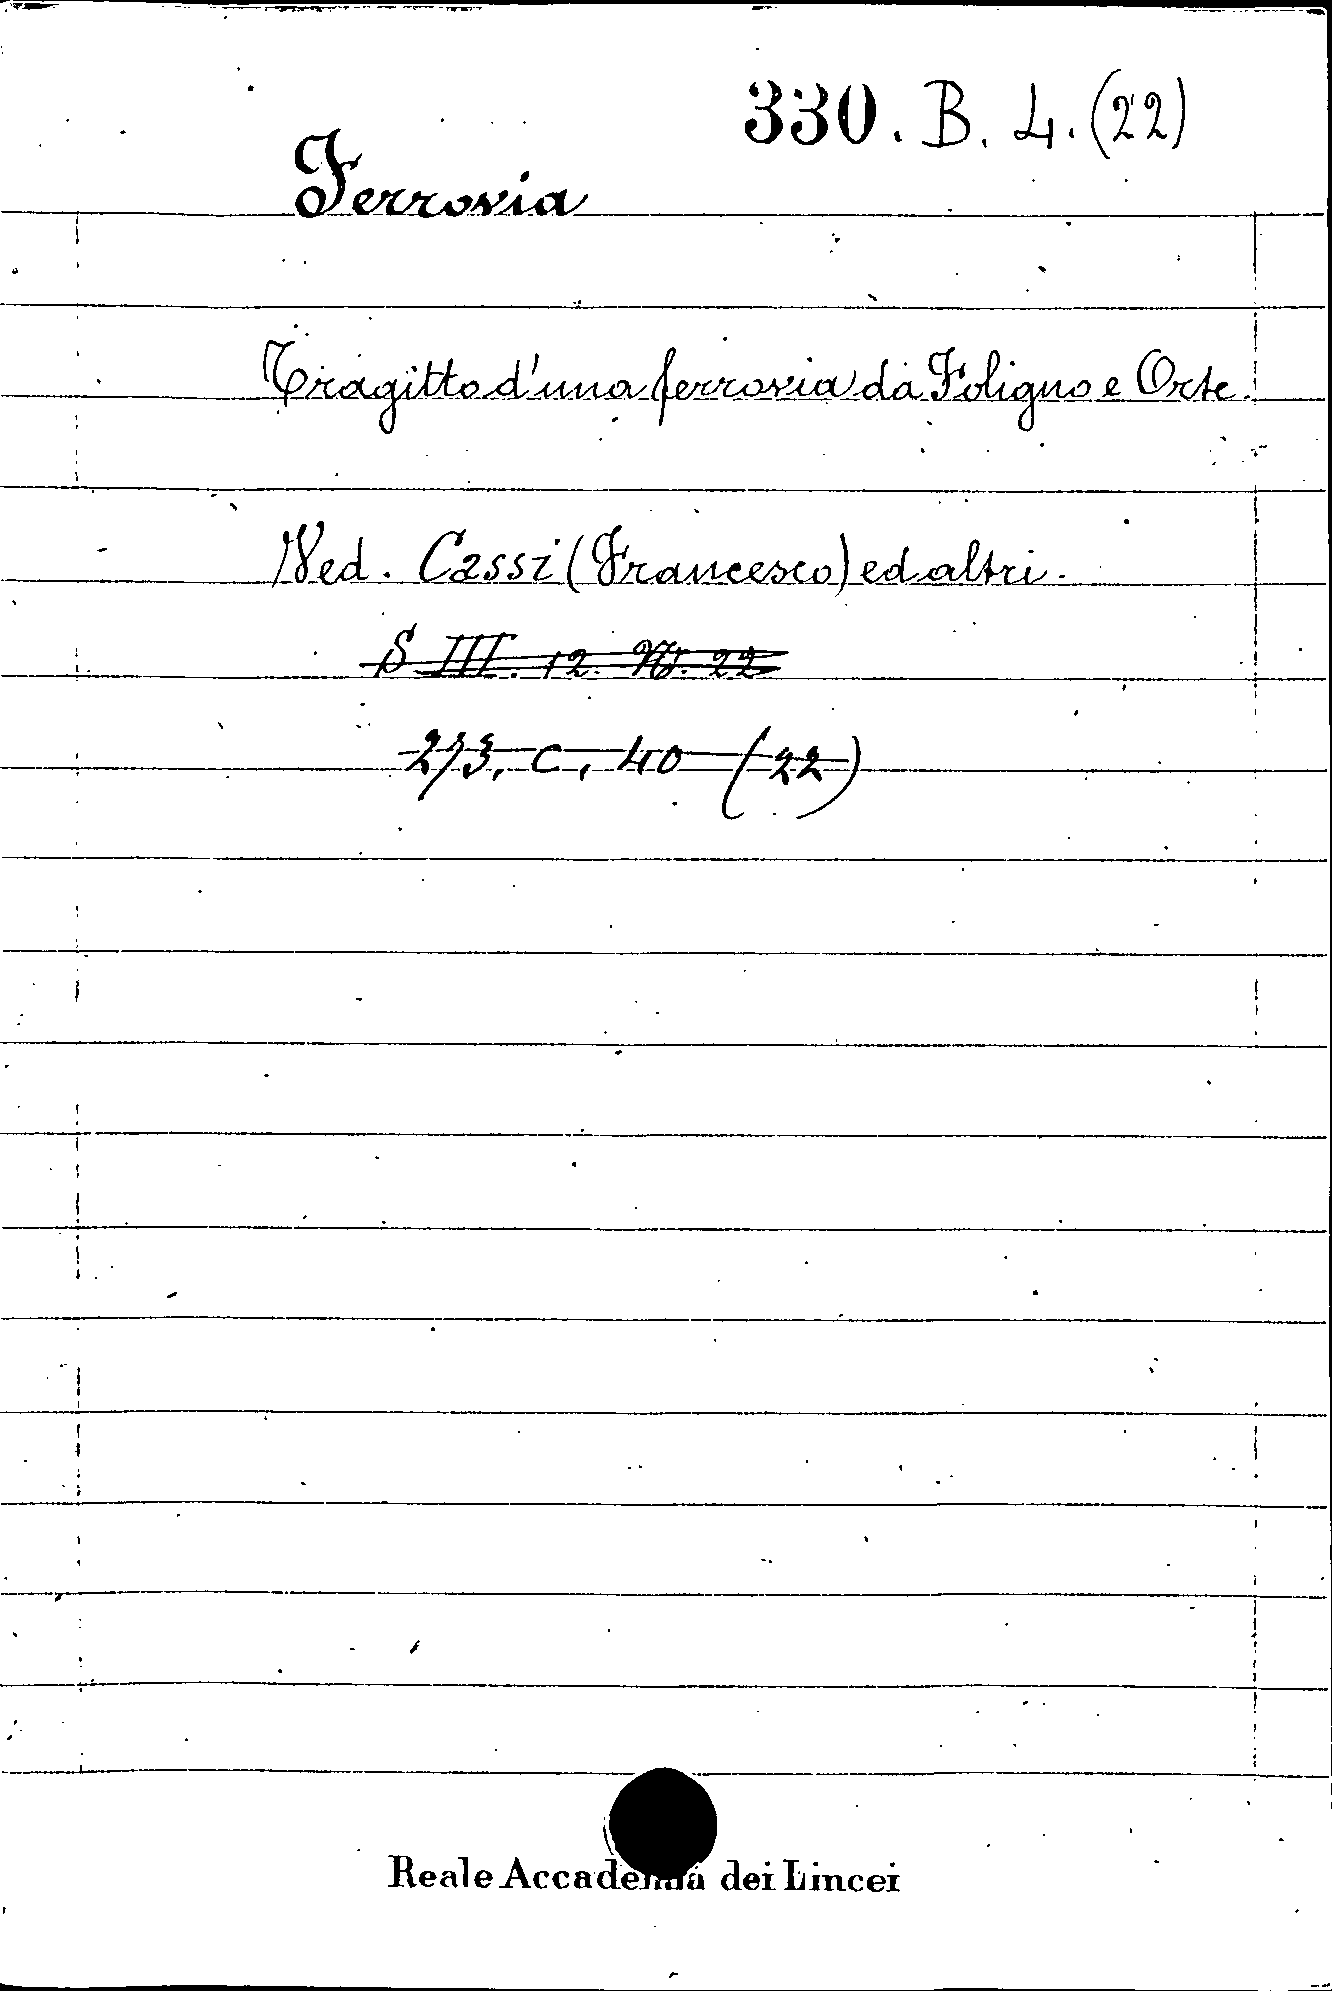 330. B. 4. (22)
Ferrovia
Tragitto d'una ferrovia da Foligno e Orte.
Ved. Cassi (Francesco) ed altri.
S III. 12. N. 22
273. C. 40 (22)
Reale Accademia dei Lincei